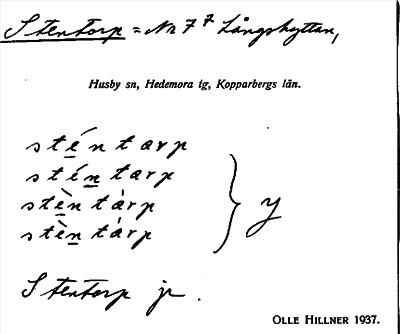 Stentorp = No 7⁷ Långshyttan,
Husby sn, Hedemora tg, Kopparbergs län.
sté̱ntarp
stén̲tarp
stè̱ntàrp } y
stèn̲tàrp
Stentorp jr.
OLLE HILLNER 1937.